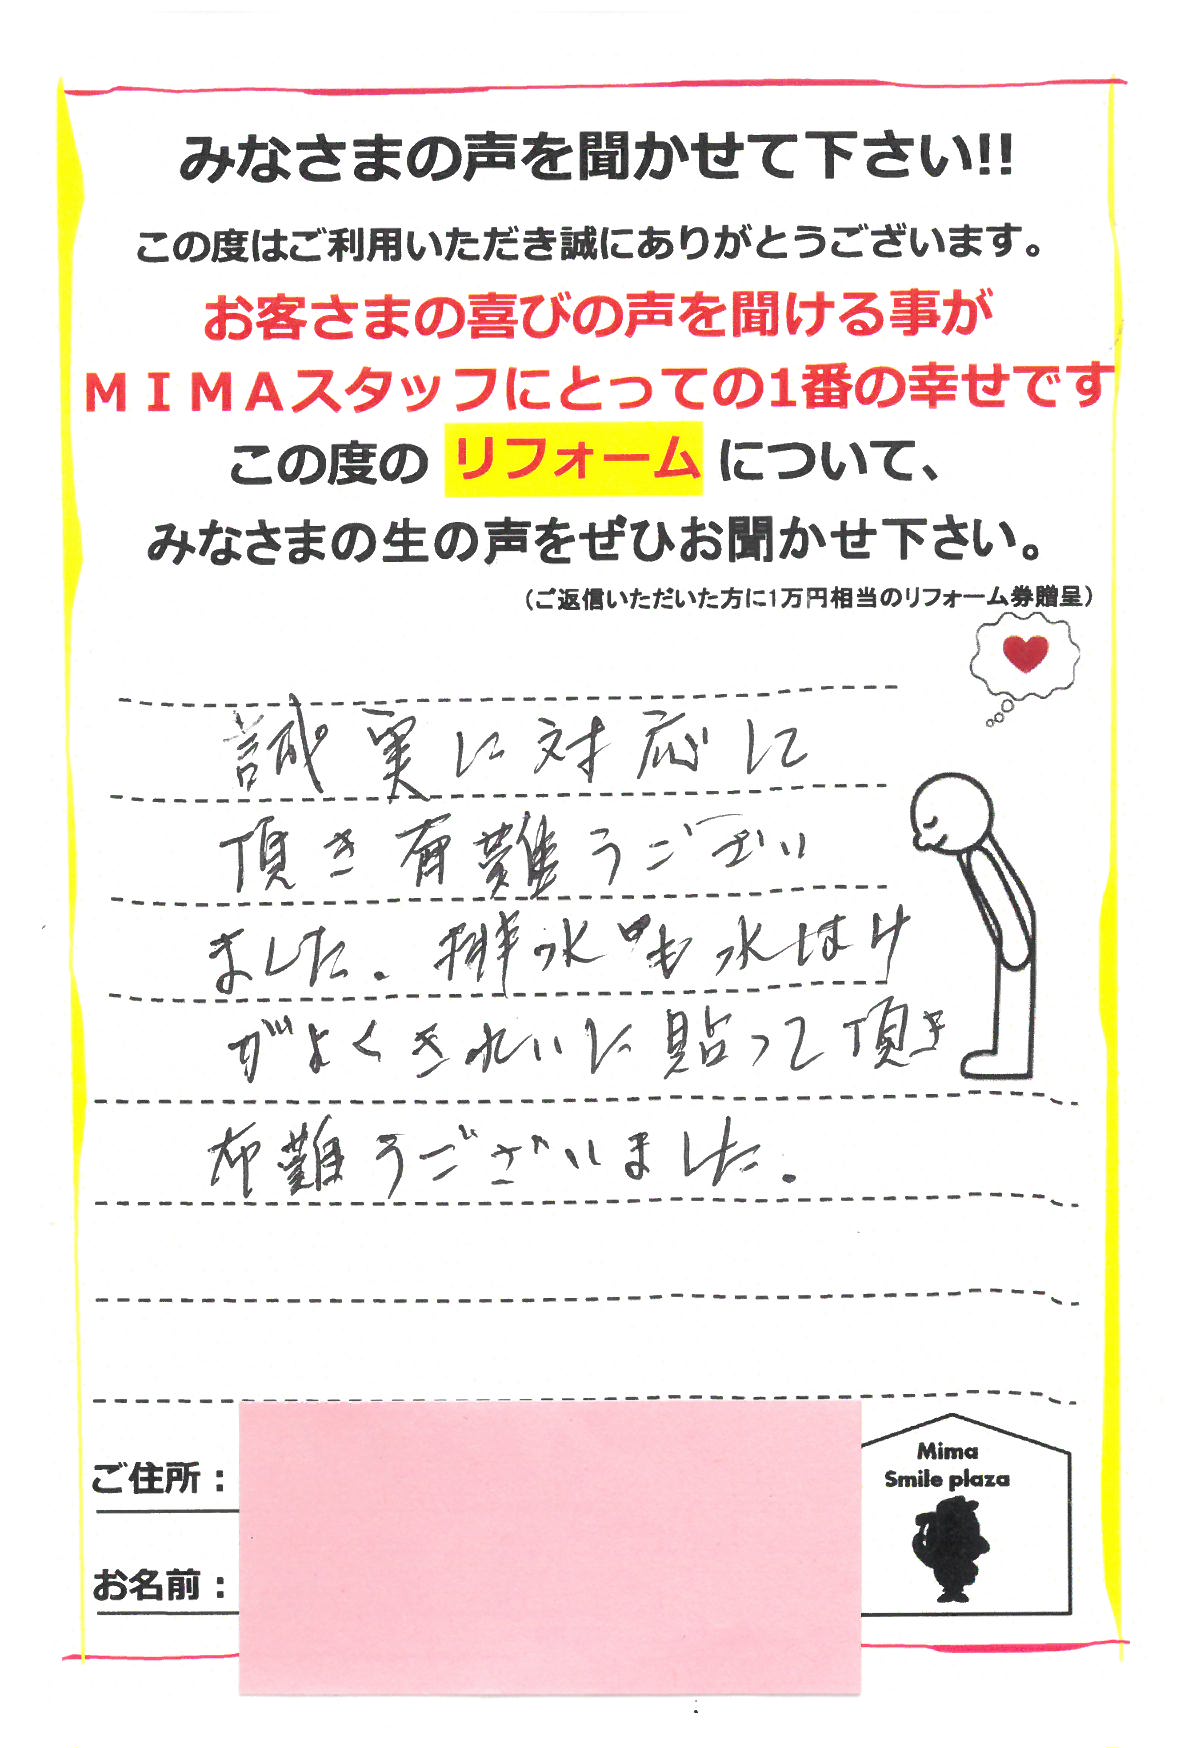 みなさまの声を聞かせて下さい!!
この度はご利用いただき誠にありがとうございます。
お客さまの喜びの声を聞ける事が
ＭＩＭＡスタッフにとっての1番の幸せです
この度の リフォーム について、
みなさまの生の声をぜひお聞かせ下さい。
（ご返信いただいた方に1万円相当のリフォーム券贈呈）
誠実に対応に
頂き有難うござい
ました。排水も水はけ
がよくきれいに貼って頂き
有難うございました。
Mima
Smile plaza
ご住所：
お名前：